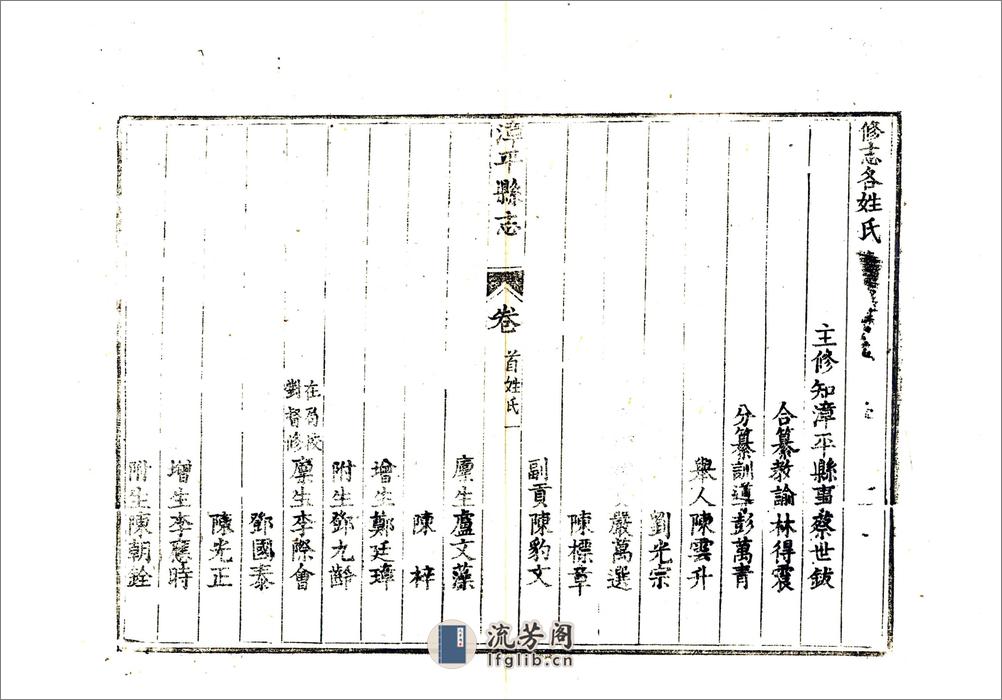 修志各姓氏
主修知漳平縣事蔡世鈸
合纂教諭林得震
分纂訓導彭萬青
舉人陳雲升
劉光宗
嚴萬選
陳標章
副貢陳豹文
漳平縣志
卷
首姓氏
一
廩生盧文藻
陳梓
增生鄭廷璋
附生鄧九齡
在局
對督修
廩生李際會
鄧國泰
陳光正
增生李應時
附生陳朝銓
流芳阁
lfglib.cn